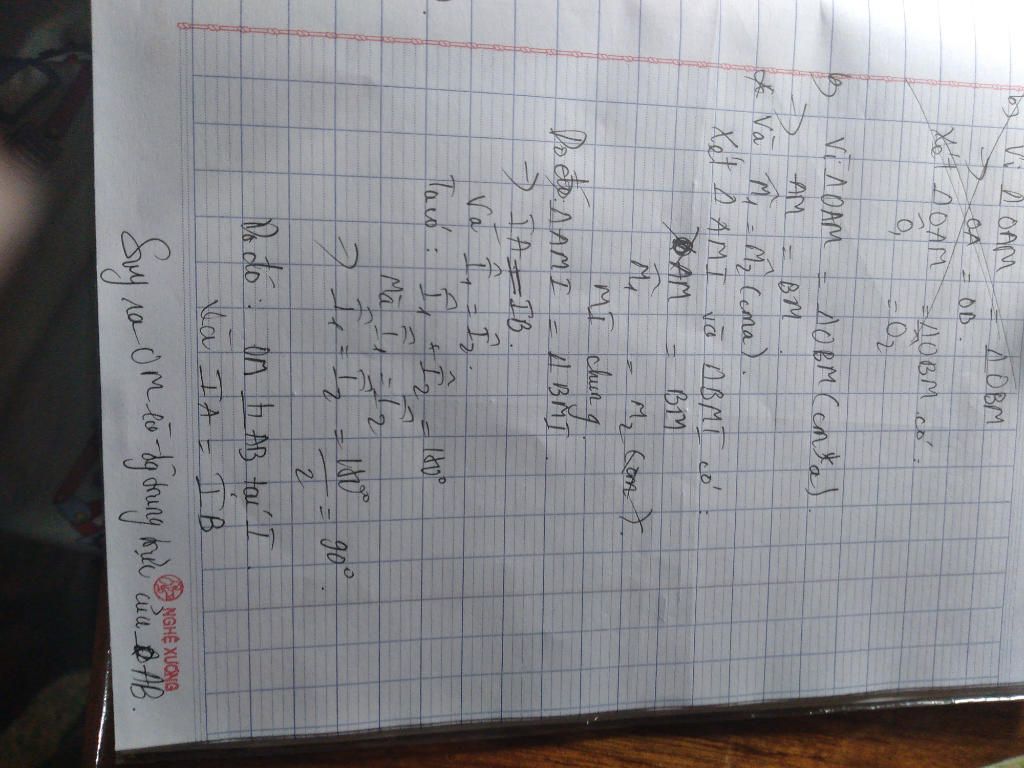 b) Vì ΔOAM = ΔOBM
=> OA = OB.
Xét ΔOAM = ΔOBM có:
Ô1 = Ô2
b) Vì ΔOAM = ΔOBM (cmta)
=> AM = BM.
Và M̂1 = M̂2 (cma).
Xét ΔAMI và ΔBMI có:
AM = BM
M̂1 = M2 (cm)
MI chung.
Do đó ΔAMI = ΔBMI
=> IA = IB.
Và Î1 = Î2.
Ta có: Î1 + Î2 = 180°
Mà Î1 = Î2
=> Î1 = Î2 = 180°/2 = 90°.
Do đó: OM ⊥ AB tại I.
Và IA = IB
Suy ra OM là đg trung trực của AB.
NGHÊ XUONG